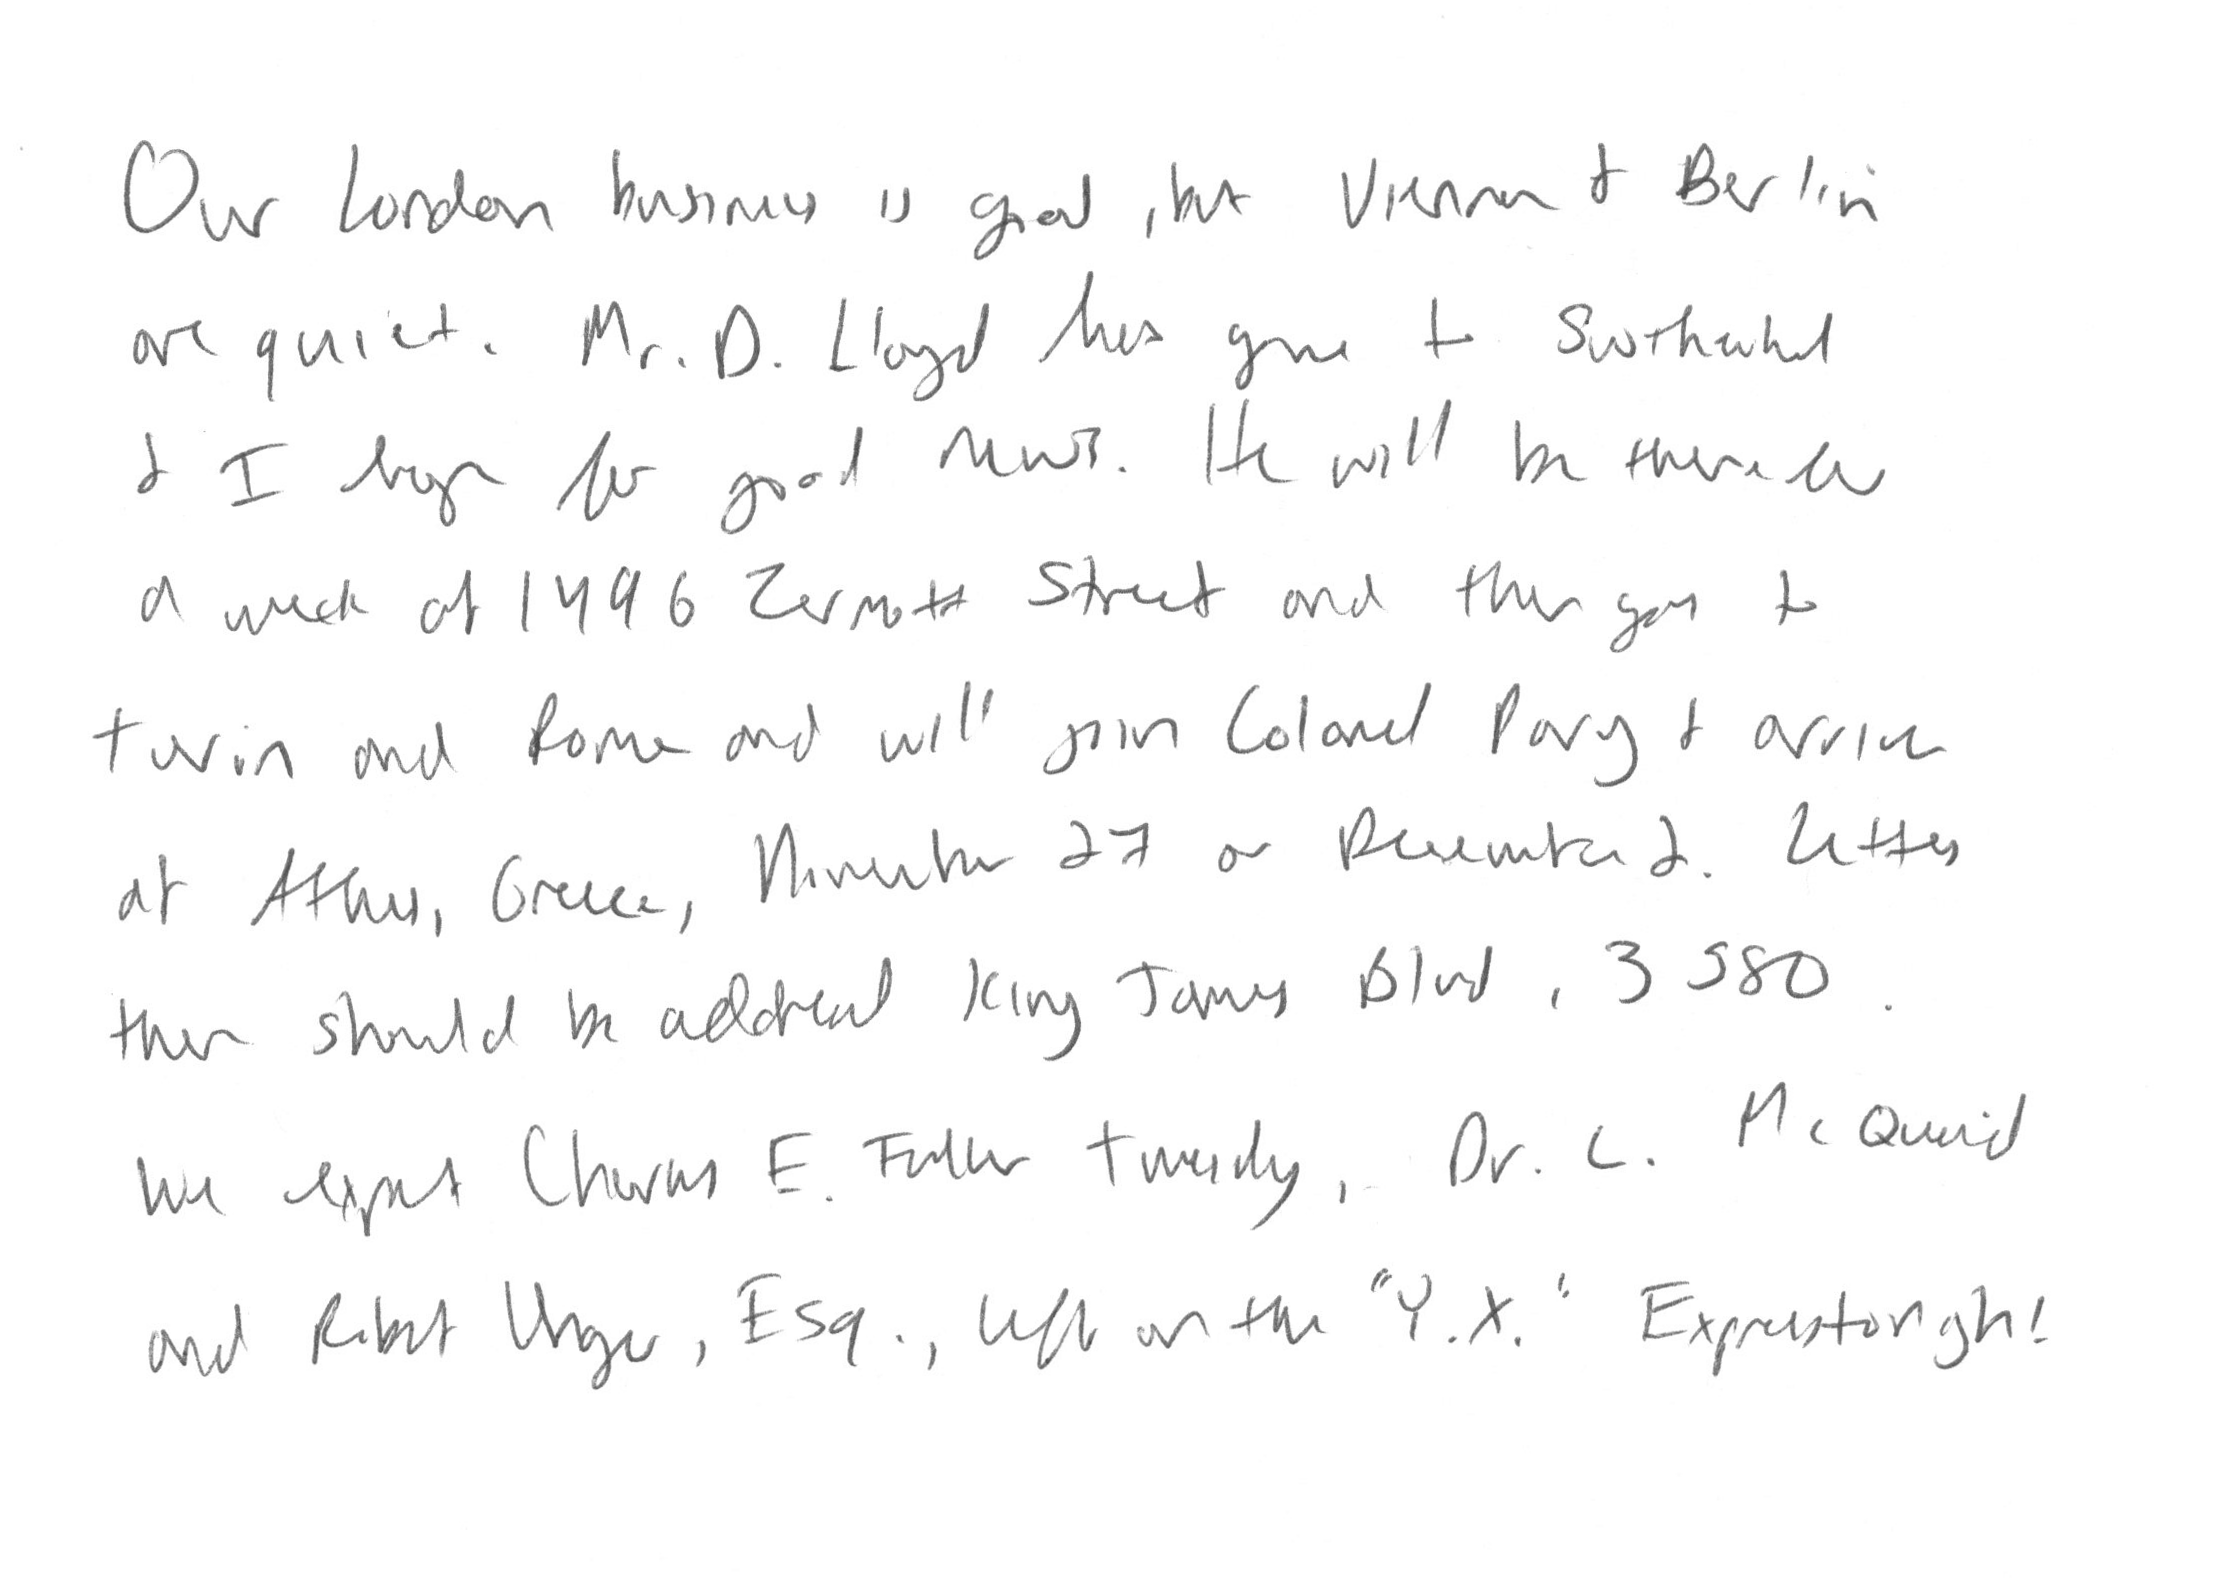 Our London business is good, but Vienna & Berlin
are quiet. Mr. D. Lloyd has gone to Switherland
& I hope for good news. He will be there for
a week at 1496 Zermott Street and then goes to
turin and Rome and will join Colonel Pary & arrive
at Athens, Greece, November 27 or December 2. Letters
then should be addressed King James Blvd, 3580.
We expect Charles E. Fuller tuesday, Dr. L. McQuaid
and Robert Unger, Esq., left on the "Y.X." Express tonight!